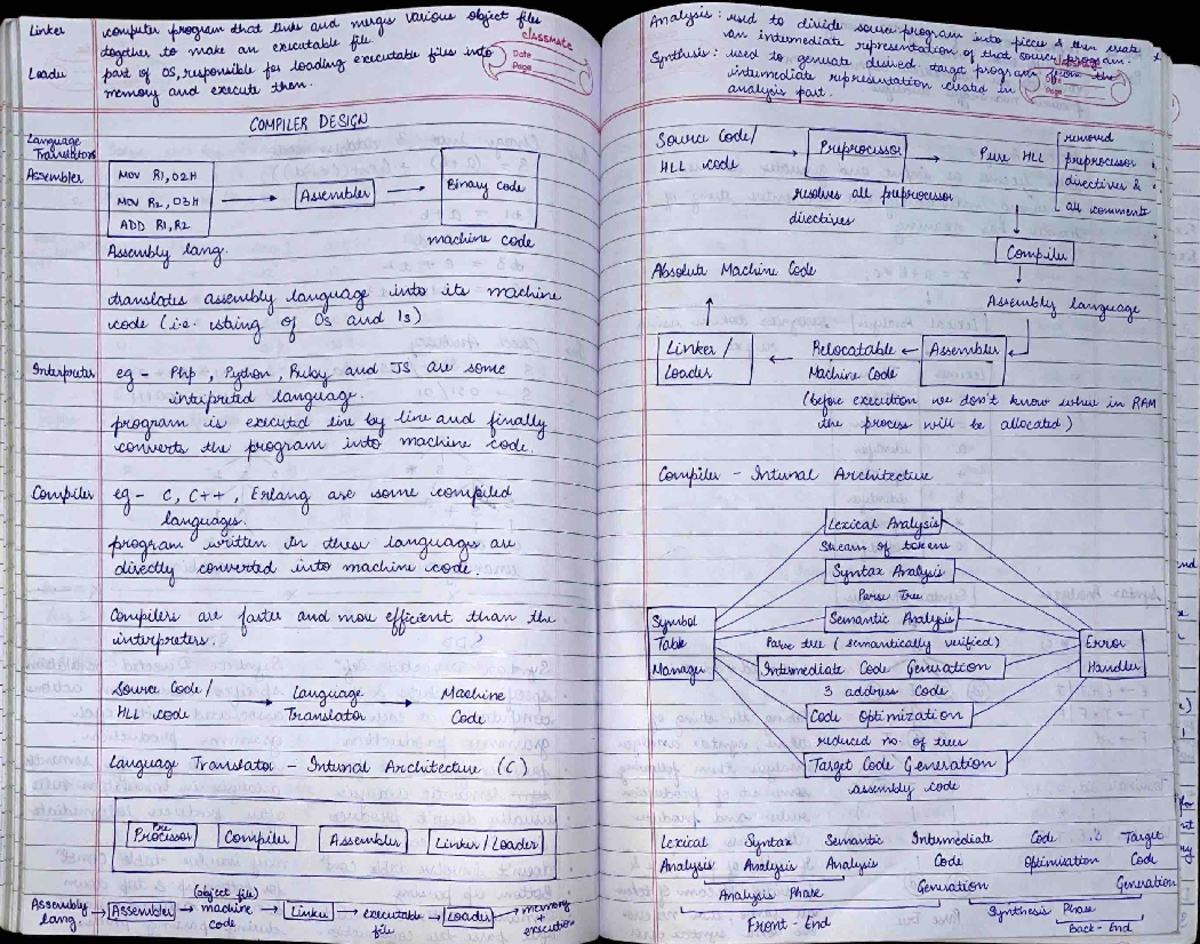 Linker computer program that links and merges various object files
together to make an executable file.
Loader part of OS, responsible for loading executable files into
memory and execute them.
classmate
Date
Page
COMPILER DESIGN
Language
Translators
Assembler
MOV R1, 02H
MOV R2, 03H
ADD R1, R2
Assembler
Binary code
Assembly lang.
machine code
translates assembly language into its machine
code (i.e. string of 0s and 1s)
Interpreter eg - Php, Python, Ruby and JS are some
interpreted language.
program is executed line by line and finally
converts the program into machine code.
Compiler eg - C, C++, Erlang are some compiled
languages.
program written in these languages are
directly converted into machine code.
Compilers are faster and more efficient than the
interpreters.
Source Code/ → Language → Machine
HLL code Translator Code
Language Translator - Internal Architecture (C)
Pre
Processor Compiler Assembler Linker/Loader
(object file)
Assembly → Assembler → machine → Linker → executable → Loader → memory
lang. code file + execution
Analysis : used to divide source program into pieces & then create
an intermediate representation of that source program.
Synthesis : used to generate desired target program from the
intermediate representation created in
analysis part.
classmate
Page
Source Code/ → Preprocessor → Pure HLL removed
HLL code preprocessor
resolves all preprocessor directives &
directives all comments
Compiler
Absolute Machine Code
Assembly language
Linker / ← Relocatable ← Assembler
Loader Machine Code
(before execution we don't know where in RAM
the process will be allocated)
Compiler - Internal Architecture
Lexical Analysis
Stream of tokens
Syntax Analysis
Parse Tree
Symbol
Table
Manager
Semantic Analysis
Parse tree (semantically verified)
Error
Handler
Intermediate Code Generation
3 address Code
Code Optimization
reduced no. of trees
Target Code Generation
assembly code
Lexical Syntax Semantic Intermediate Code Target
Analysis Analysis Analysis Code Optimisation Code
Analysis Phase Generation Generation
Synthesis Phase
Front-End Back-End